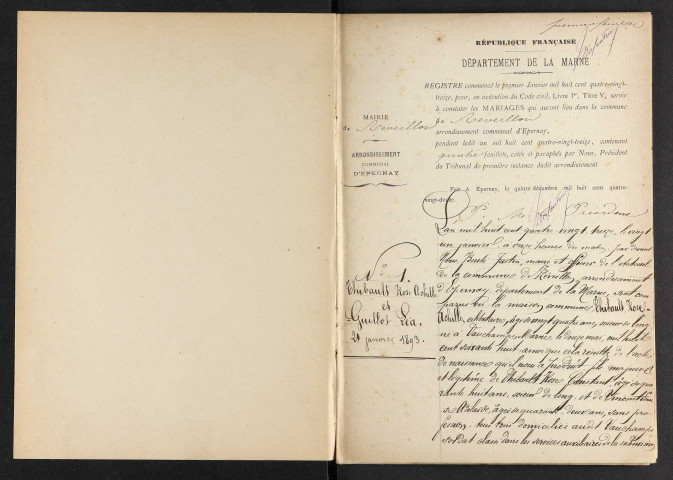 premier feuillet
RÉPUBLIQUE FRANÇAISE
DÉPARTEMENT DE LA MARNE
REGISTRE commencé le premier Janvier mil huit cent quatre-vingt-
treize, pour, en exécution du Code civil, Livre Ier, Titre V, servir
à constater les MARIAGES qui auront lieu dans la commune
de Réveillon
arrondissement communal d'Epernay,
pendant ledit an mil huit cent quatre-vingt-treize, contenant
quatre feuillets, cotés et paraphés par Nous, Président
du Tribunal de première instance dudit arrondissement
MAIRIE
de Réveillon
ARRONDISSEMENT
COMMUNAL
D'ÉPERNAY
Fait à Epernay, le quinze décembre mil huit cent quatre-
vingt-douze.
P. M. Président
L'an mil huit cent quatre vingt treize, le vingt
un janvier, à onze heures du matin, par devant
Nous, Justin, maire et officier de l'état civil
de la commune de Réveillon, arrondissement
d'Epernay département de la Marne, sont com
parus en la maison commune Thibault Rose
Achille, âgé de vingt quatre ans,
né à Vauchamps, Marne, le douze mai, mil huit
cent soixante huit ainsi que cela résulte de l'acte
de naissance qu'il nous a produit, fils majeur
et légitime de Thibault Rose Constant âgé de qua
rante huit ans, et de
Adélaïde, âgée de quarante deux ans, sans pro
fession, tous trois domiciliés audit Vauchamps
soldat classé dans les services auxiliaires de la subdivision
No 1.
Thibault Rose Achille
et
Guillot Léa.
21 janvier 1893.